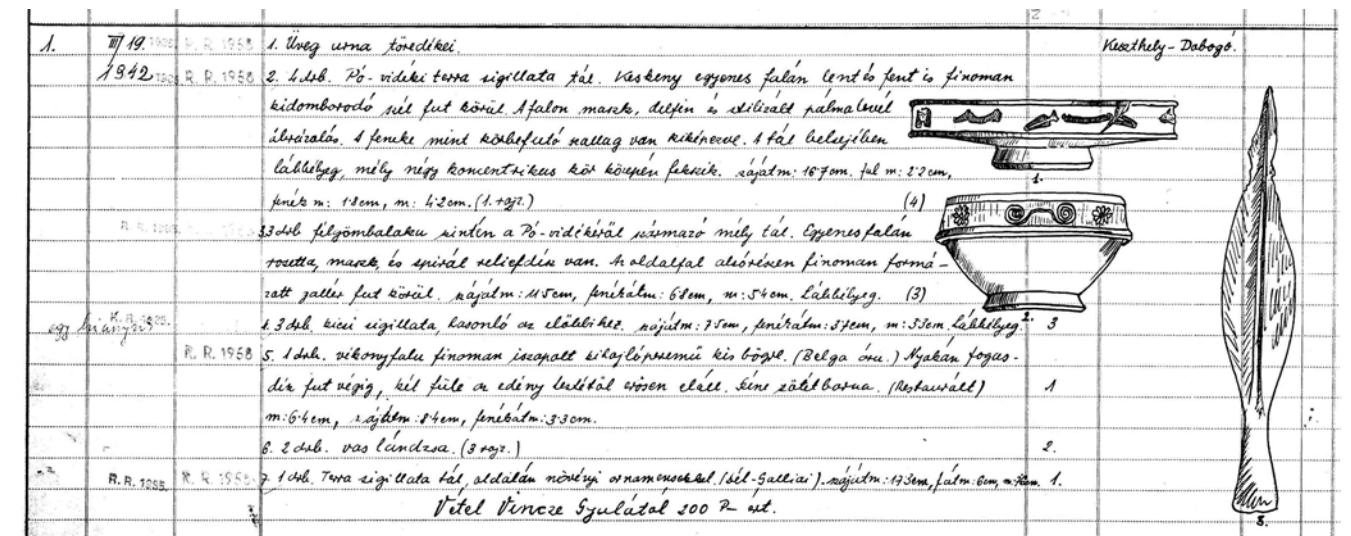 1. III/19. R. R. 1958 1. Üveg urna töredékei. Keszthely-Dobogó.
1942 R. R. 1958 2. 4 drb. Pó-vidéki terra sigillata tál. Keskeny egyenes falán lent és fent is finoman
kidomborodó szél fut körül. A falon maszk, delfin és stilizált pálmalevél
ábrázolás. A feneke mint körbefutó szallag van kiképezve. A tál belsejében
lábbélyeg, mély négy koncentrikus kör közepén fekszik. szájátm: 16·7cm. fal m: 2·2 cm,
fenék m: 1·8cm, m: 4·2cm. (1. rajz.) (4)
1.
3. 3 drb félgömbalaku szintén a Pó-vidékéről származó mély tál. Egyenes falán
rosetta, maszk, és spirál reliefdísz van. Az oldalfal alsórészen finoman formá-
zott gallér fut körül. szájátm: 11·5cm, fenékátm: 6·8cm, m: 5·4cm. Lábbélyeg. (3)
2.
egy hiányzik 4. 3 drb. kicsi sigillata, hasonló az előbbihez. szájátm: 7·5cm, fenékátm: 3·7cm, m: 3·3cm. Lábbélyeg. 3
R. R. 1958 5. 1 drb. vékonyfalu finoman iszapolt kihajlóperemű kis bögre. (Belga áru.) Nyakán fogas-
dísz fut végig, két füle az edény testétől erősen eláll. Színe sötétbarna. (Restaurált) 1
m: 6·4cm, szájátm: 8·4cm, fenékátm: 3·3cm.
6. 2 drb. vas lándzsa. (3 rajz.) 2.
R. R. 1958 7. 1 drb. Terra sigillata tál, oldalán növényi ornamensekkel. (Dél-Galliai). szájátm: 17·3cm, f.átm: 6cm, 1.
Vétel Vincze Gyulától 200 P- ért.
3.